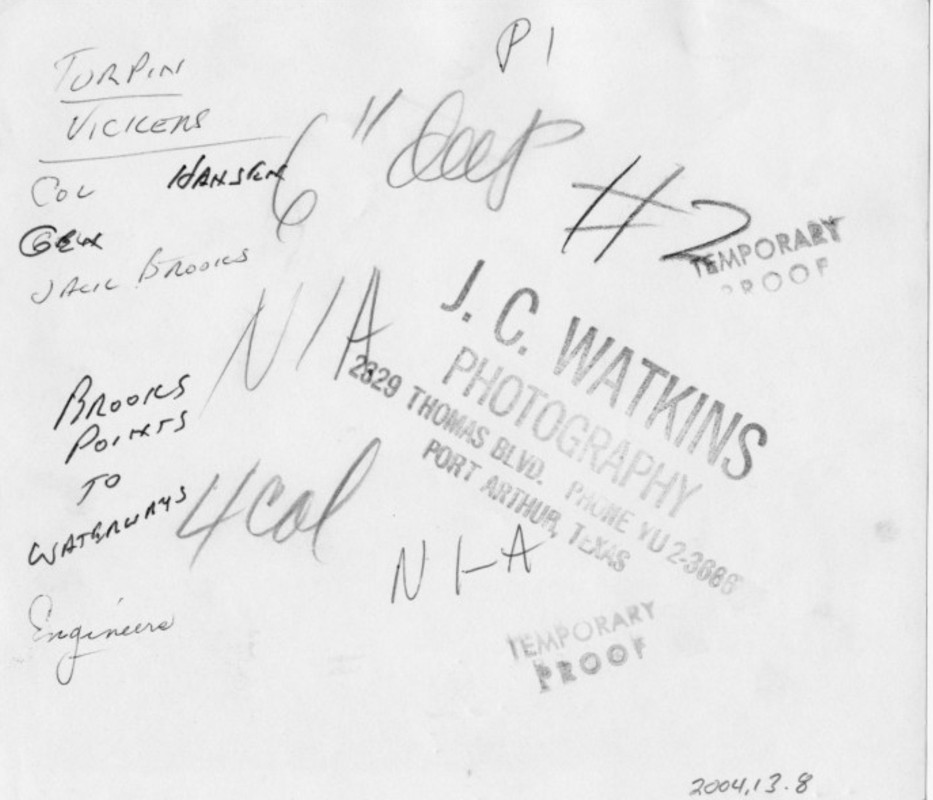 P1
TURPIN
VICKERS
COL HANSEN
GEN
JACK BROOKS
6" deep
#2
TEMPORARY
PROOF
N/A
J. C. WATKINS
PHOTOGRAPHY
2829 THOMAS BLVD. PHONE YU 2-3666
PORT ARTHUR, TEXAS
BROOKS
POINTS
TO
WATERWAYS
4 col
N1-A
Engineers
TEMPORARY
PROOF
2004.13.8